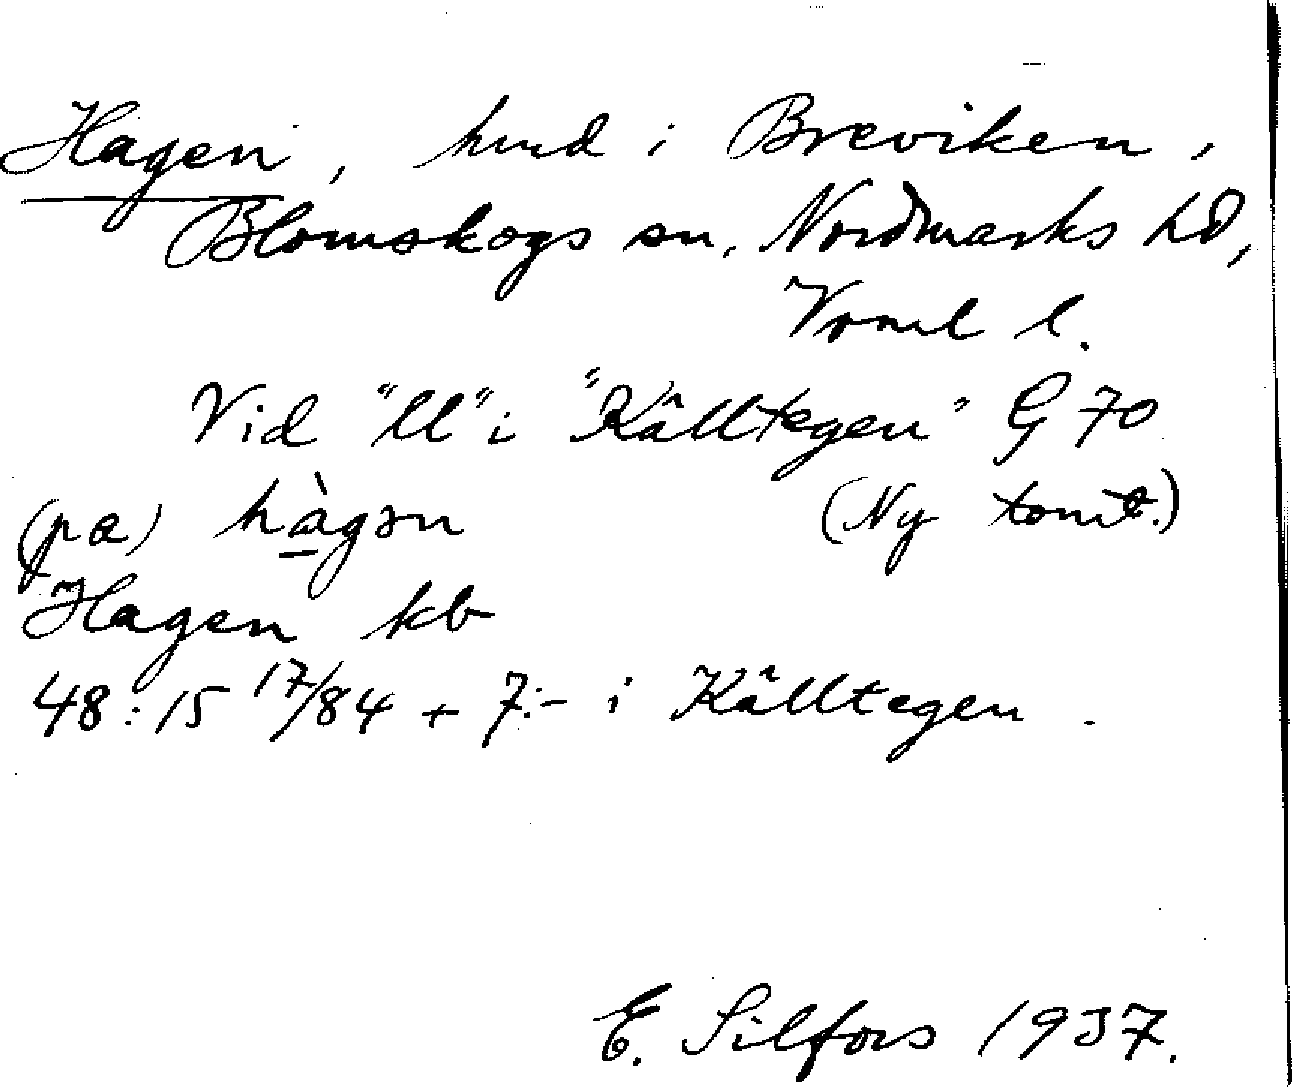 Hagen, hmd i Breviken,
Blomskogs sn, Nordmarks hd,
Vrml l.
Vid "ll" i "Källtegen" G 70
(pæ) hàgən (Ny tomt.)
Hagen kb
48:15 17/84 + 7:- i Källtegen.
E. Silfors 1937.